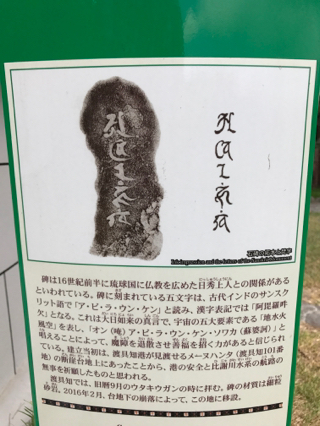 石碑の拓本と梵字
碑は16世紀前半に琉球国に仏教を広めた日秀上人との関係があると
いわれている。碑に刻まれている五文字は、古代インドのサンスク
リット語で「ア・ビ・ラ・ウン・ケン」と読み、漢字表記では「阿毘羅吽
欠」となる。これは大日如来の真言で、宇宙の五大要素である「地水火
風空」を表し、「オン（唵）ア・ビ・ラ・ウン・ケン・ソワカ（蘇婆訶）」と
唱えることによって、魔障を退散させ善福を招く力があると信じられ
ている。建立当初は、渡具知港が見渡せるメーヌハンタ（渡具知101番
地）の断崖台地にあったことから、港の安全と比謝川水系の航路の
無事を祈願したものと思われる。
渡具知では、旧暦9月のウタキウガンの時に拝む。碑の材質は細粒
砂岩。2016年2月、台地下の崩落によって、この地に移設。